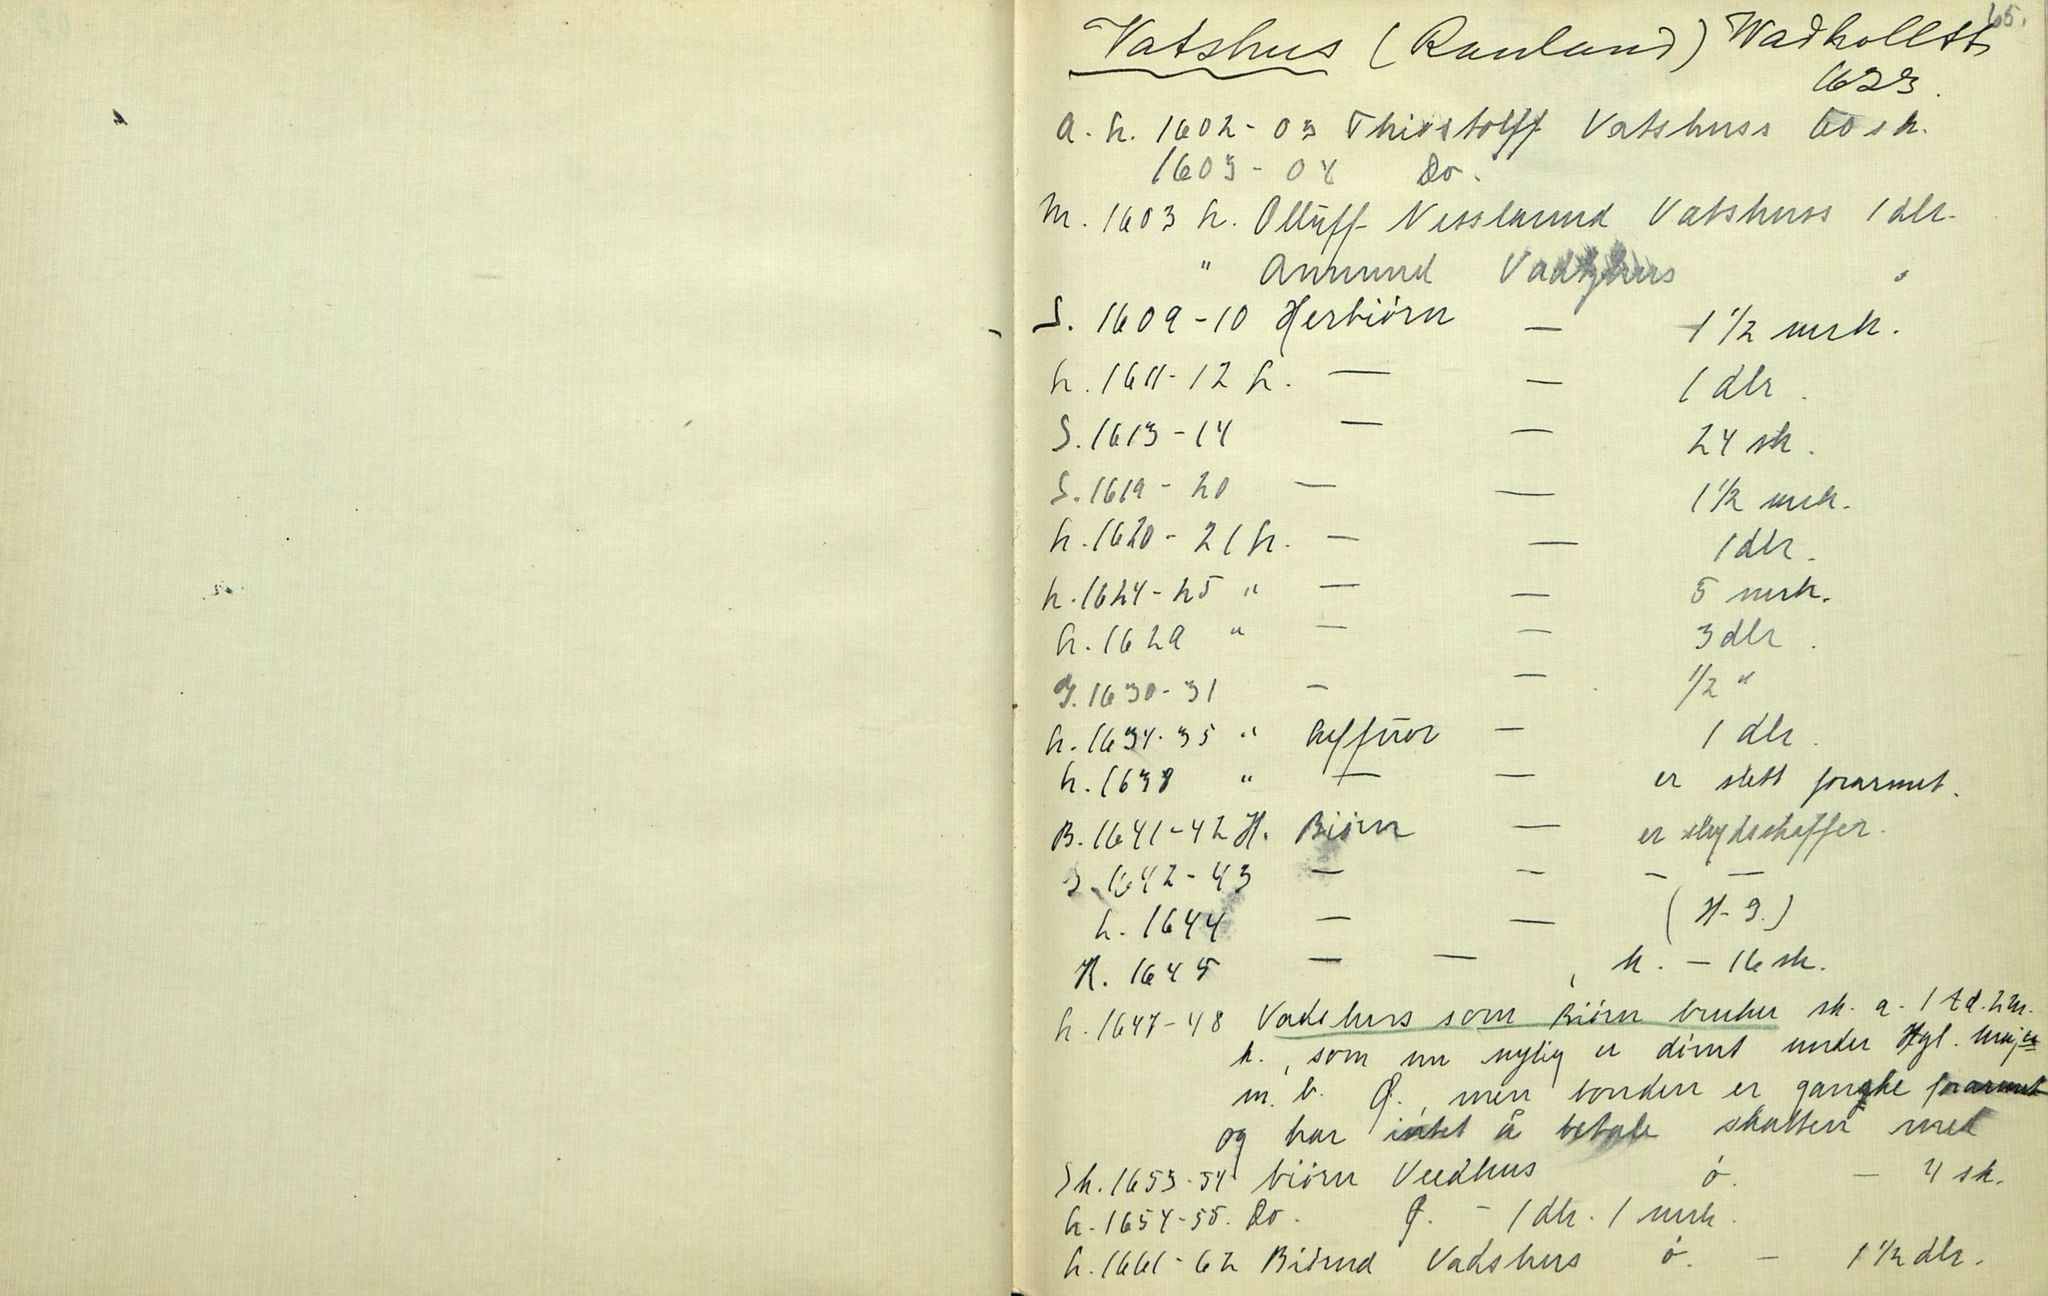 65.
Vatshus (Rauland) Wadhollth
1623.
A. h. 1602-03 Thiostolff Vatshuss 60 sk.
1603-04 Do.
M. 1603 h. Olluff Nesslannd Vatshuss 1 dlr.
" Anund Vadtzhus "
S. 1609-10 Herbiörn — 1 1/2 mrk.
h. 1611-12 h. — — 1 dlr.
S. 1613-14 — — 24 sk.
S. 1619-20 — — 1 1/2 mrk.
h. 1620-21 h. — — 1 dlr.
h. 1624-25 " — — 5 mrk.
h. 1629 " — — 3 dlr.
J. 1630-31 — — 1/2 "
h. 1634-35 " — 1 dlr.
h. 1638 " — — er slett forarmet.
B. 1641-42 H. Biörn — er skydschaffer.
J. 1642-43 — — — —
h. 1644 — — (H-g.)
K. 1645 — — , h. — 16 sk.
h. 1647-48 Vadshus som Biörn bruker sk. a. 1 td. 2 m.
h., som nu nylig er dömt under Kgl. maj.
m. b. Ø., men bonden er ganske forarmet
og har intet å betale skatten med
Sk. 1653-54 biörn Veedhus ö. — 4 sk.
h. 1654-55. Do. Ø. - 1 dlr. 1 mrk.
h. 1661-62 Biörnd Vadshus ö. — 1 1/2 dlr.